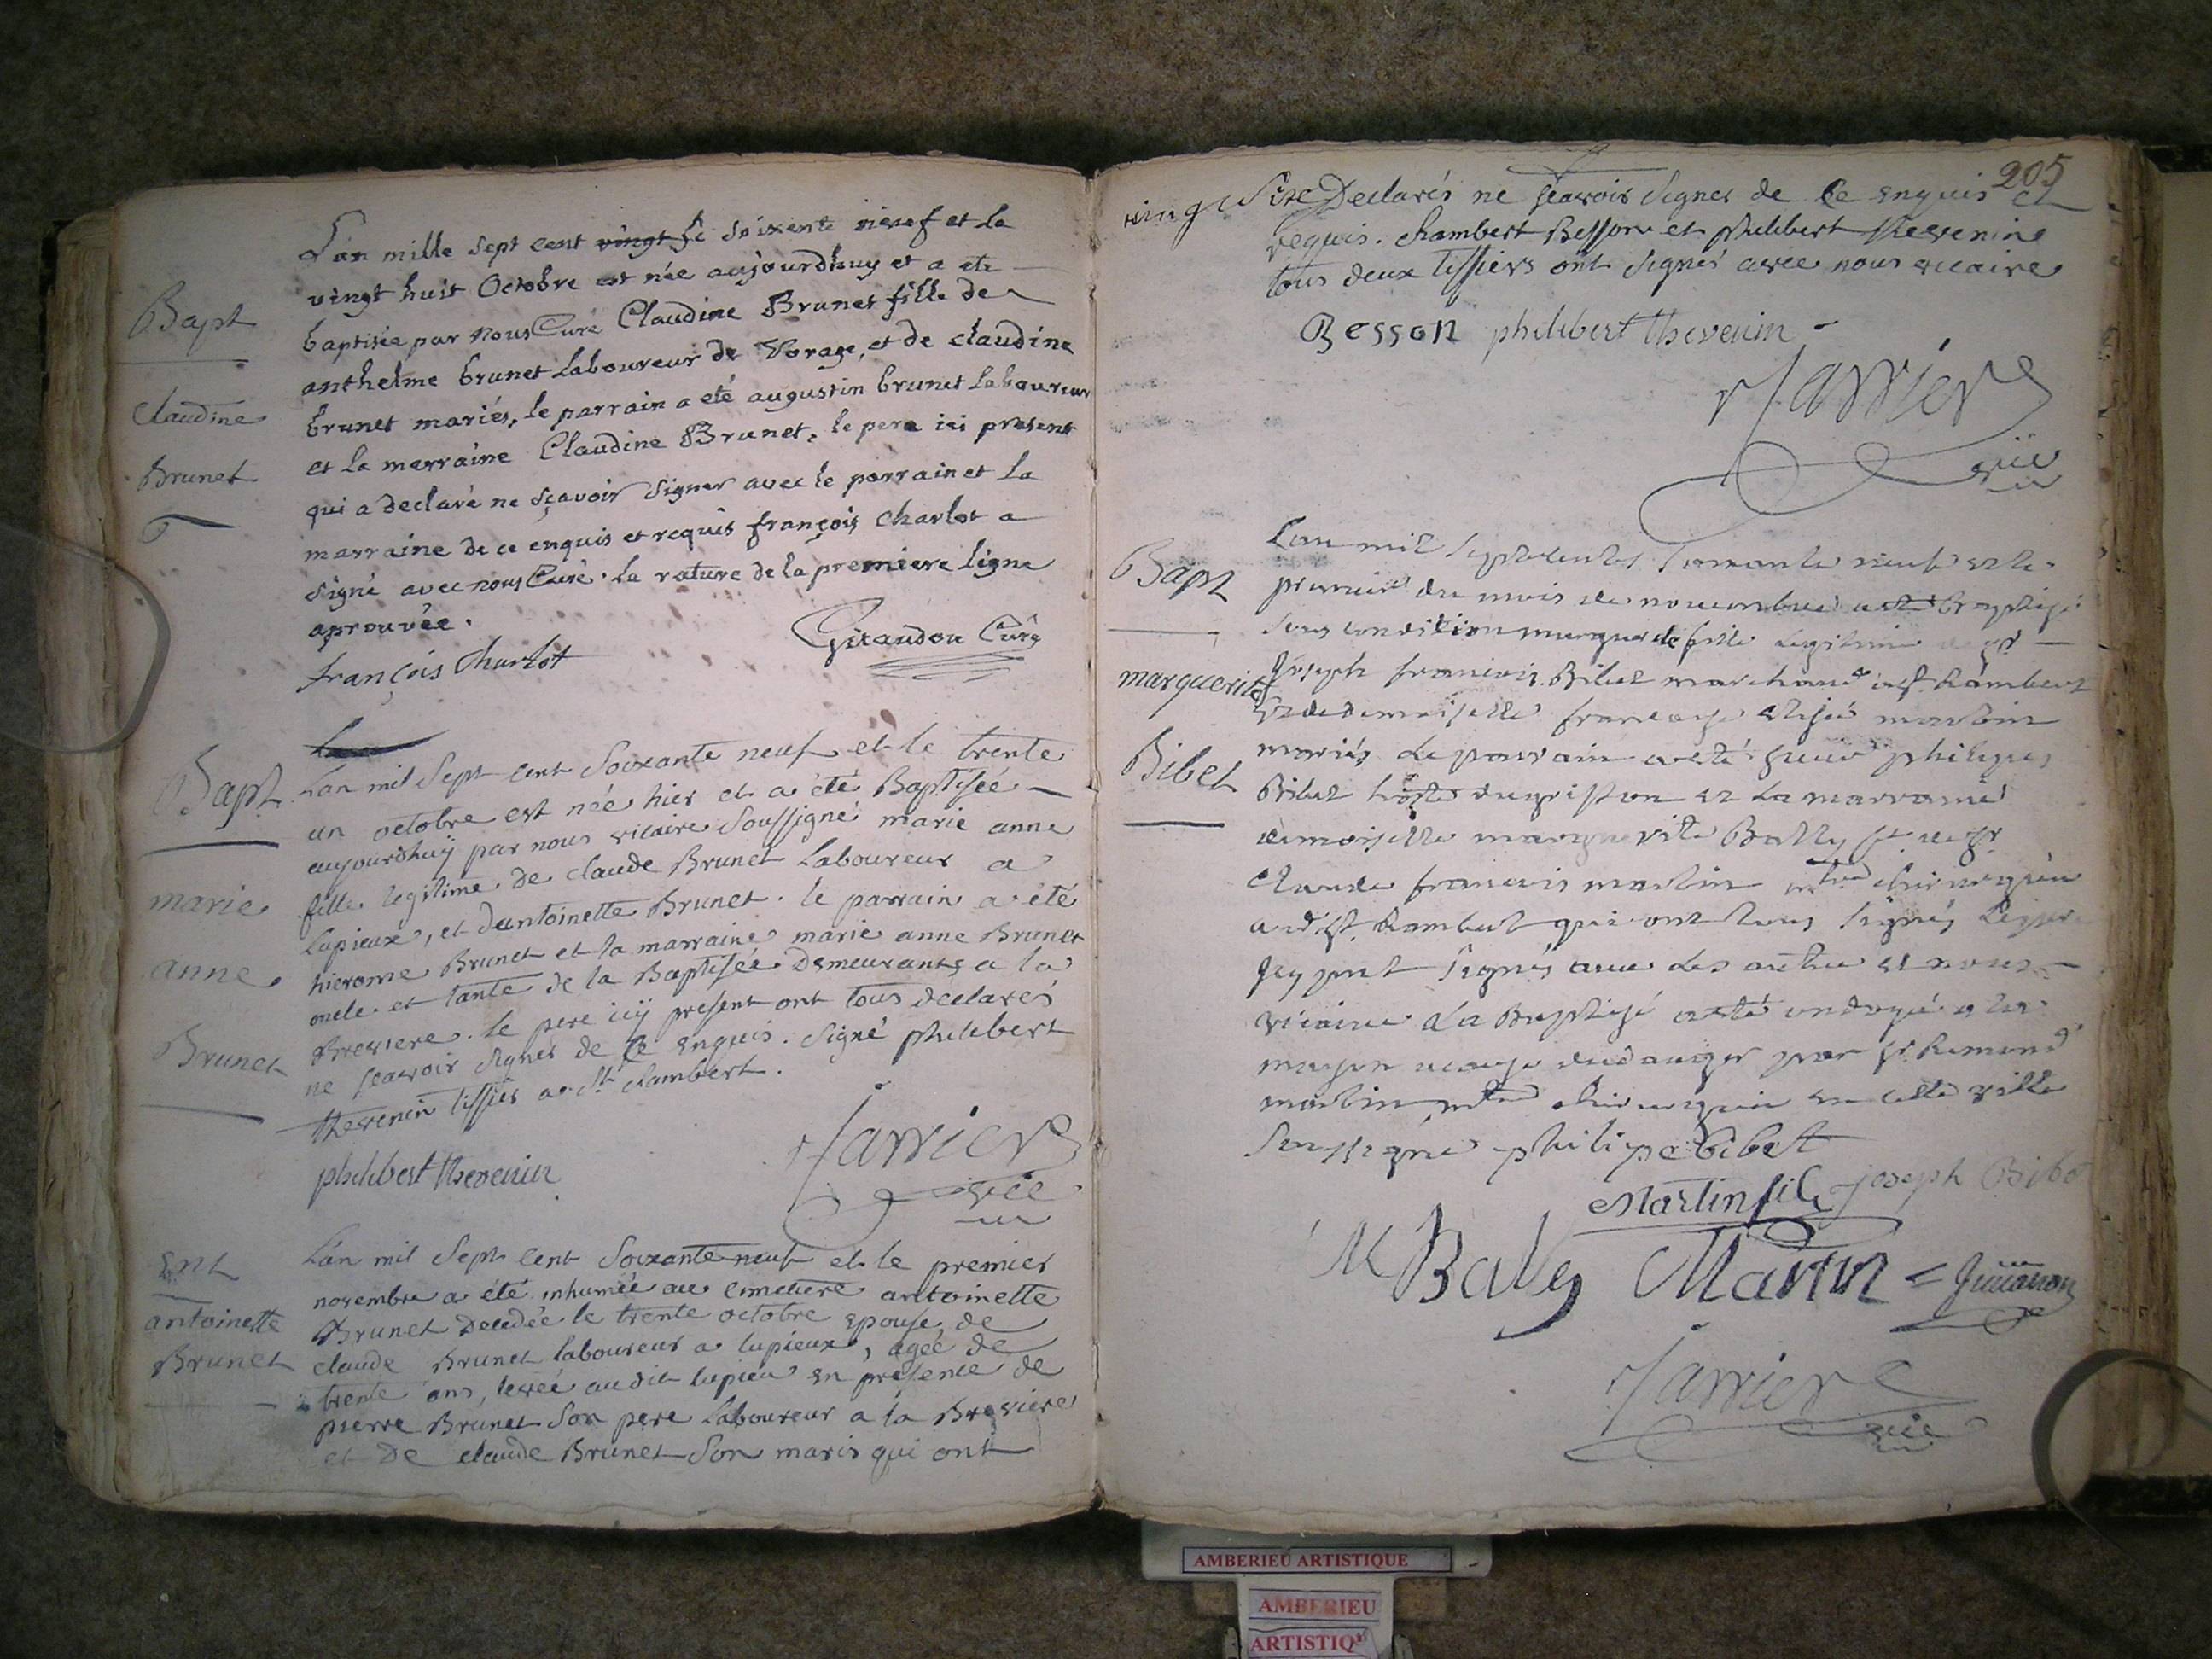 Bapt
Claudine
Brunet
L'an mille sept cent vingt se soixente nieuf et le
vingt huit Octobre est née aujourdhuy et a ete
baptisée par nous Curé Claudine Brunet fille de
anthelme brunet laboureur de Vorage, et de claudine
brunet mariés, le parrain a eté augustin brunet laboureur
et la merraine Claudine Brunet, le pere ici present
qui a declaré ne sçavoir signer avec le parrain et la
marraine de ce enquis et requis françois Charlot a
signé avec nous Curé. la rature de la premiere ligne
aprouvée.
françois Charlot
Giraudon Curé
Bapt
marie
anne
Brunet
L'an mil Sept cent Soixante neuf et le trente
un octobre est née hier et a été Baptisée
aujourdhuÿ par nous vicaire Soussigné marie anne
fille legitime de claude Brunet Laboureur a
Lupieux, et dantoinette Brunet. le parrain a été
hierome Brunet et la marraine marie anne Brunet
oncle et tante de la Baptisée Demeurants a la
Breviere. le pere icÿ present ont tous declarés
ne scavoir signer de Ce enquis. Signé philibert
thevenin tissier a St Rambert.
philibert thevenin
Jarriere
vice
Ent
antoinette
Brunet
L'an mil Sept cent Soixante neuf et le premier
novembre a été inhumée au cimetiere antoinette
Brunet decedée le trente octobre epouse de
claude Brunet laboureur a lupieux, agée de
trente ans, levée audit lupieu en presence de
pierre Brunet Son pere Laboureur a la Breviere
et De claude Brunet Son maris qui ont
205
Declarés ne scavoir Signer de Ce enquis et
requis. Rambert Besson et philibert thevenin
tous deux tissiers ont Signés avec nous vicaire
Besson philibert thevenin
Jarriere
vic
Bapt
marguerite
Bibet
L'an mil sept cents soixante neuf et le
premier du mois de novembre a eté baptisé
sous condition marguerite fille legitime de sr
Joseph francois Bibet marchand a St Rambert
et de demoiselle francoise martin
mariés le parrain a eté sieur philipes
Bibet hoste et la marraine
demoiselle marguerite Bally de sr
Claude francois martin mtre chirurgien
aud St Rambert qui ont tous signés le pere
icy pnt signés avec les autres et nous
vicaire La Baptisé a eté ondoyé a la
maison a cause du danger par sr Rimond
martin mtre chirurgien en cette ville
soussigné philipe bibet
Martin fils joseph Bibet
M Bally Martin
Jarriere
vic
AMBERIEU ARTISTIQUE
AMBERIEU
ARTISTIQ